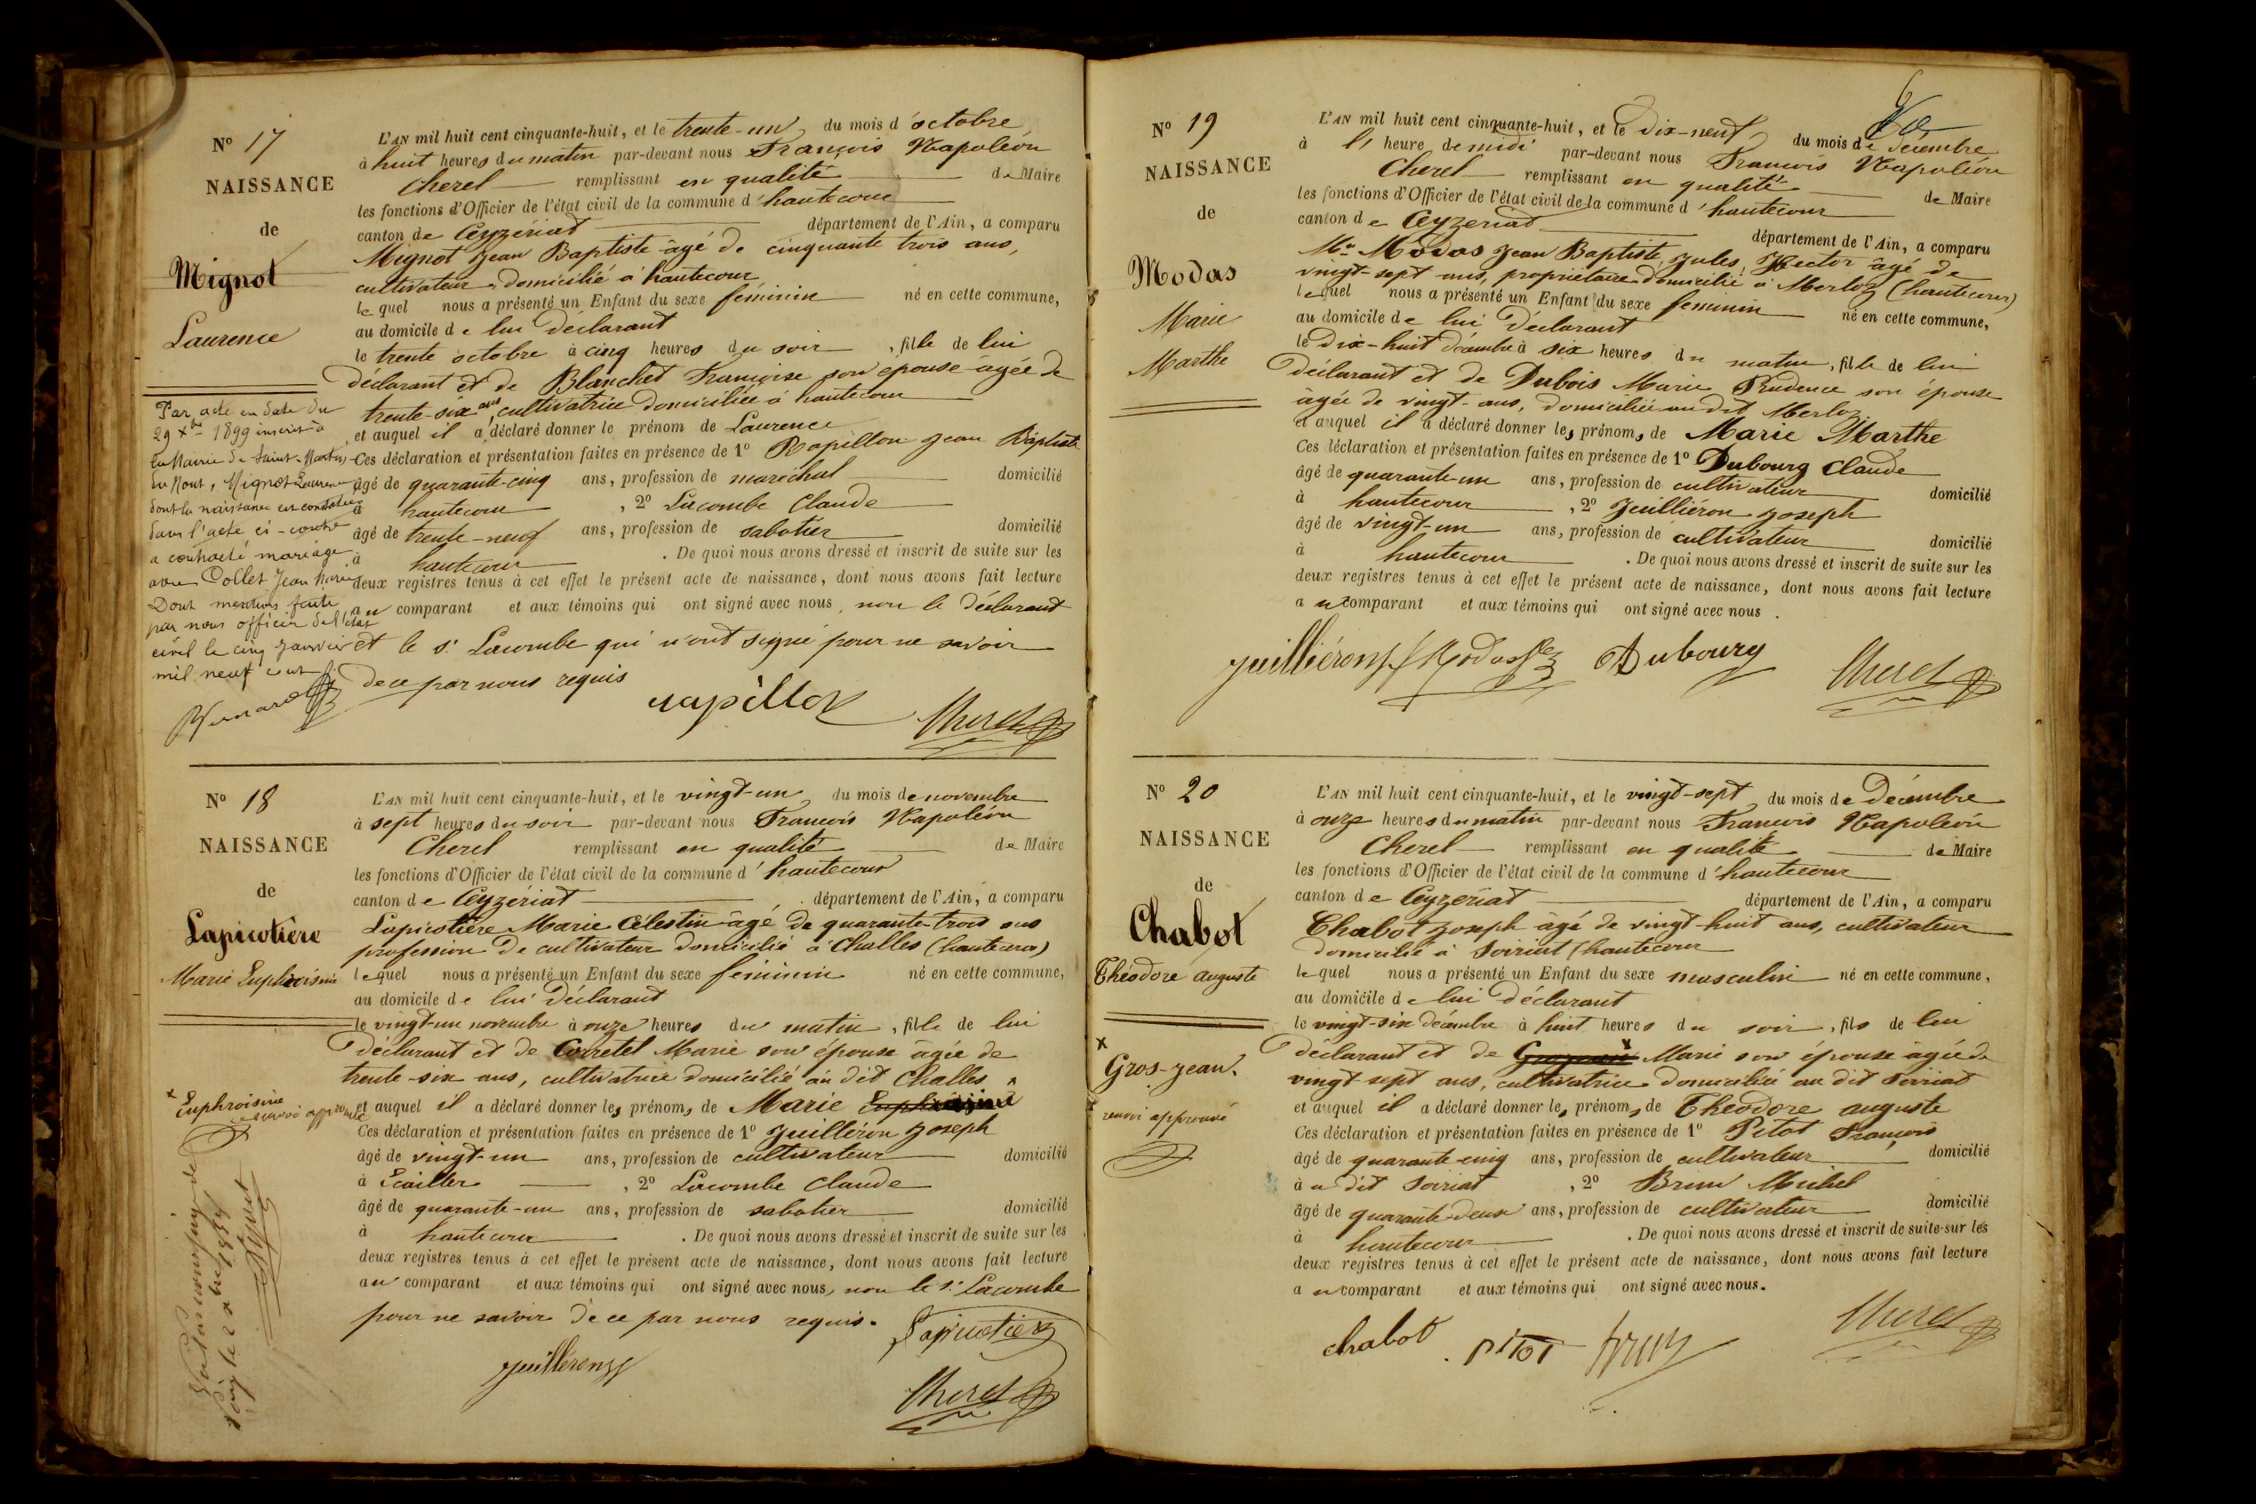 No 17
NAISSANCE
de
Mignot
Laurence
L'AN mil huit cent cinquante-huit, et le trente-un du mois d'octobre
à huit heures du matin par-devant nous François Napoléon
Cherel remplissant en qualité de Maire
les fonctions d'Officier de l'état civil de la commune d'hautecour
canton de Ceyzériat département de l'Ain, a comparu
Mignot Jean Baptiste âgé de cinquante trois ans,
cultivateur domicilié à hautecour
lequel nous a présenté un Enfant du sexe féminin né en cette commune,
au domicile de lui Déclarant
le trente octobre à cinq heures du soir, fille de lui
déclarant et de Blanchet Françoise son épouse âgée de
trente-six ans, cultivatrice domiciliée à hautecour
et auquel il a déclaré donner le prénom de Laurence
Ces déclaration et présentation faites en présence de 1º Rapillon Jean Baptiste
âgé de quarante-cinq ans, profession de maréchal domicilié
à hautecour, 2º Lacombe Claude
âgé de trente-neuf ans, profession de sabotier domicilié
à hautecour. De quoi nous avons dressé et inscrit de suite sur les
deux registres tenus à cet effet le présent acte de naissance, dont nous avons fait lecture
au comparant et aux témoins qui ont signé avec nous, non le déclarant
et le sr Lacombe qui n'ont signé pour ne savoir
de ce par nous requis
Par acte en date du
29 Xbre 1899 inscrit à
la Mairie de Saint-Martin-
du Mont, Mignot Laurence
dont la naissance est constatée
dans l'acte ci-contre
a contracté mariage
avec Collet Jean Marie
Dont mention faite
par nous officier de l'état
civil le cinq Janvier
mil neuf cent
rapillon Cherel
No 18
NAISSANCE
de
Lapicotière
Marie Euphroisine
L'AN mil huit cent cinquante-huit, et le vingt-un du mois de novembre
à sept heures du soir par-devant nous François Napoléon
Cherel remplissant en qualité de Maire
les fonctions d'Officier de l'état civil de la commune d'hautecour
canton de Ceyzériat département de l'Ain, a comparu
Lapicotière Marie Célestin âgé de quarante-trois ans
profession de cultivateur domicilié à Challes (hautecour)
lequel nous a présenté un Enfant du sexe féminin né en cette commune,
au domicile de lui Déclarant
le vingt-un novembre à onze heures du matin, fille de lui
déclarant et de Corretel Marie son épouse âgée de
trente-six ans, cultivatrice domicilié au dit Challes
et auquel il a déclaré donner les prénoms de Marie
x Euphroisine
renvoi approuvé
Ces déclaration et présentation faites en présence de 1º Juilléron Joseph
âgé de vingt-un ans, profession de cultivateur domicilié
à, 2º Lacombe Claude
âgé de quarante-un ans, profession de sabotier domicilié
à hautecour. De quoi nous avons dressé et inscrit de suite sur les
deux registres tenus à cet effet le présent acte de naissance, dont nous avons fait lecture
au comparant et aux témoins qui ont signé avec nous, non le sr Lacombe
pour ne savoir de ce par nous requis.
Lapicotière
Juilléron Cherel
No 19
NAISSANCE
de
Modas
Marie
Marthe
L'AN mil huit cent cinquante-huit, et le dix-neuf du mois de décembre
à heure de midi par-devant nous François Napoléon
Cherel remplissant en qualité de Maire
les fonctions d'Officier de l'état civil de la commune d'hautecour
canton de Ceyzeriat département de l'Ain, a comparu
Mr Modas Jean Baptiste, Jules, Hector âgé de
vingt-sept ans, propriétaire domicilié à Merloz (hautecour)
lequel nous a présenté un Enfant du sexe feminin né en cette commune,
au domicile de lui Déclarant
le dix-huit décembre à six heures du matin, fille de lui
déclarant et de Dubois Marie Prudence son épouse
âgée de vingt-ans, domiciliée au dit Merloz
et auquel il a déclaré donner les prénoms de Marie Marthe
Ces déclaration et présentation faites en présence de 1º Dubourg Claude
âgé de quarante-un ans, profession de cultivateur domicilié
à hautecour, 2º Juilliéron Joseph
âgé de vingt-un ans, profession de cultivateur domicilié
à hautecour. De quoi nous avons dressé et inscrit de suite sur les
deux registres tenus à cet effet le présent acte de naissance, dont nous avons fait lecture
au comparant et aux témoins qui ont signé avec nous.
Juilliéron J Modas Dubourg Cherel
No 20
NAISSANCE
de
Chabot
Théodore auguste
L'AN mil huit cent cinquante-huit, et le vingt-sept du mois de Décembre
à onze heures du matin par-devant nous François Napoléon
Cherel remplissant en qualité de Maire
les fonctions d'Officier de l'état civil de la commune d'hautecour
canton de Ceyzériat département de l'Ain, a comparu
Chabot Joseph âgé de vingt-huit ans, cultivateur
domicilié à Soiriat (hautecour
lequel nous a présenté un Enfant du sexe masculin né en cette commune,
au domicile de lui déclarant
le vingt-six décembre à huit heures du soir, fils de lui
déclarant et de Grosjean x Marie son épouse âgée de
vingt sept ans, cultivatrice domiciliée au dit Soiriat
et auquel il a déclaré donner les prénoms de Théodore auguste
x
Gros-Jean.
renvoi approuvé
Ces déclaration et présentation faites en présence de 1º Pitot François
âgé de quarante-cinq ans, profession de cultivateur domicilié
à u dit Soiriat, 2º Brun Michel
âgé de quarante-deux ans, profession de cultivateur domicilié
à hautecour. De quoi nous avons dressé et inscrit de suite sur les
deux registres tenus à cet effet le présent acte de naissance, dont nous avons fait lecture
au comparant et aux témoins qui ont signé avec nous.
chabot pitot brun Cherel